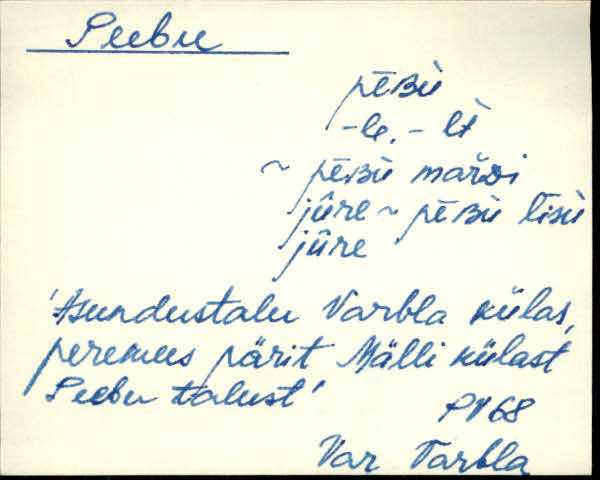 Peebu
pēʙu̬
-le, -lt
~ pēʙu̬ maŕdi
jûre ~ pēʙu̬ līsu̬
jûre
'Asundustalu Varbla külas,
peremees pärit Mälli külast
Peebu talust'
PV68
Var Varbla